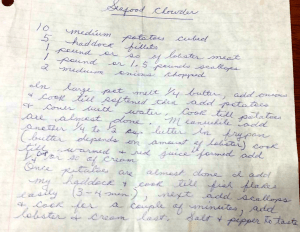 Seafood Chowder
10 medium potatoes cubed
5 haddock fillets
1 pound or so of lobster meat
1 pound or 1.5 pounds scallops
2 medium onions chopped
In large pot melt 1/4 butter, add onion
& cook till softened then add potatoes
& cover with water. Cook till potatoes
are almost done. Meanwhile add
another 1/4 to 1/2 butter in frypan
(butter depends on amount of lobster) cook
till warmed & red juice formed add
of cream
Once potatoes are almost done I add
my haddock & cook till fish flakes
easily (3-4 min), next add scallops
& cook for a couple of minutes, add
lobster & cream last. Salt & pepper to taste